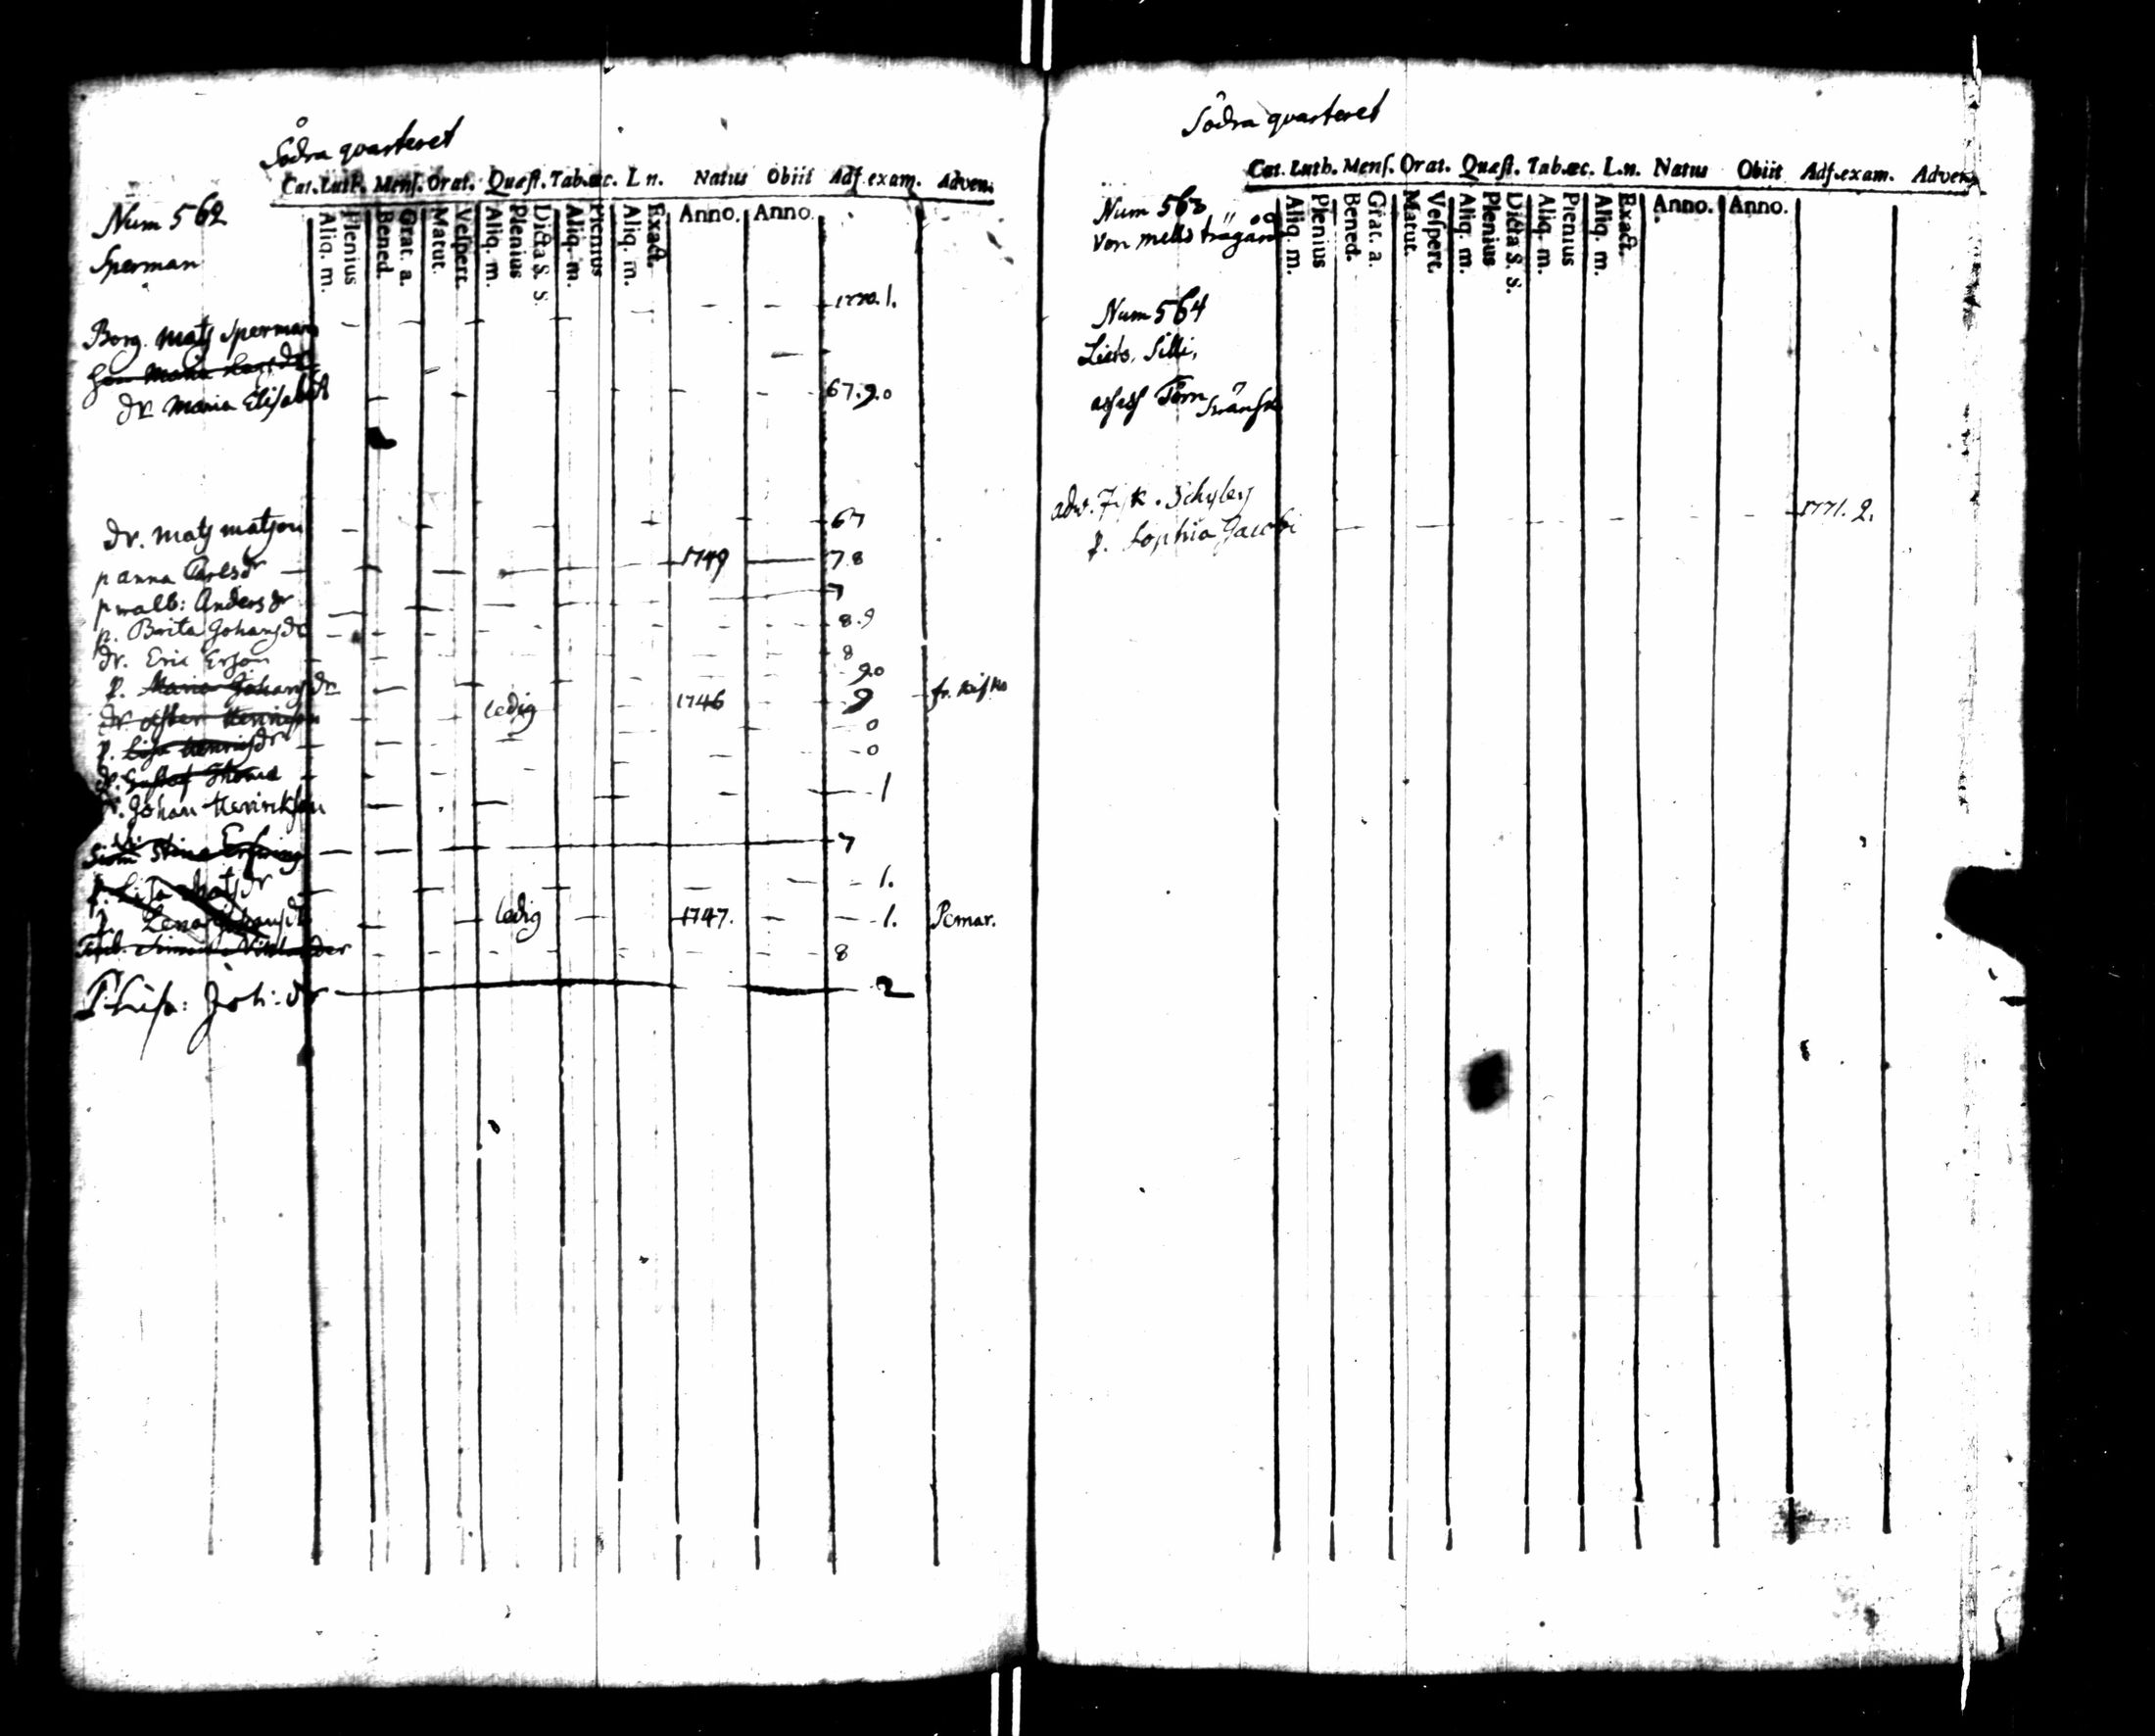 Södra quarteret
Cat. Luth. Mens. Orat. Quæst. Tab.œc. L n. Natus Obiit Adf.exam. Adven.
Num 562
Aliq. m. Plenius Bened. Grat. a. Matut. Vespert. Aliq. m. Plenius Dicta S. S. Aliq. m. Plenius Aliq. m. Exact. Anno. Anno.
Sperman
Borg. Mats Sperman 1770. 1.
Maria
dr Maria Elisabet 67. 9. 0
dr. Mats Matson 67
p Anna Carlsdr 1749 7 8
p walb: Andersdr 7
p. Brita Johansdr 8. 9
dr. Eric Erson 8
p. Maria Johansdr 9. 0
dr. Henricson ledig 1746 9
p. Lisa Henricsdr 0
dr. Gustaf 0
dr. Johan Henrikson 1
Stina 7
p. Lisa Matsdr 1.
p. Lena ledig 1747. 1. Pemar.
8
P. Lisa: Joh: dr 2
Södra quarteret
Cat. Luth. Mens. Orat. Quæst. Tab.œc. L.n. Natus Obiit Adf.exam. Adven.
Num 563
Aliq. m. Plenius Bened. Grat. a. Matut. Vespert. Aliq. m. Plenius Dicta S. S. Aliq. m. Plenius Aliq. m. Exact. Anno. Anno.
Von mells trägård
Num 564
Silli,
adv. Fisk. Schyley
p. Sophia Jacobi 1771. 2.